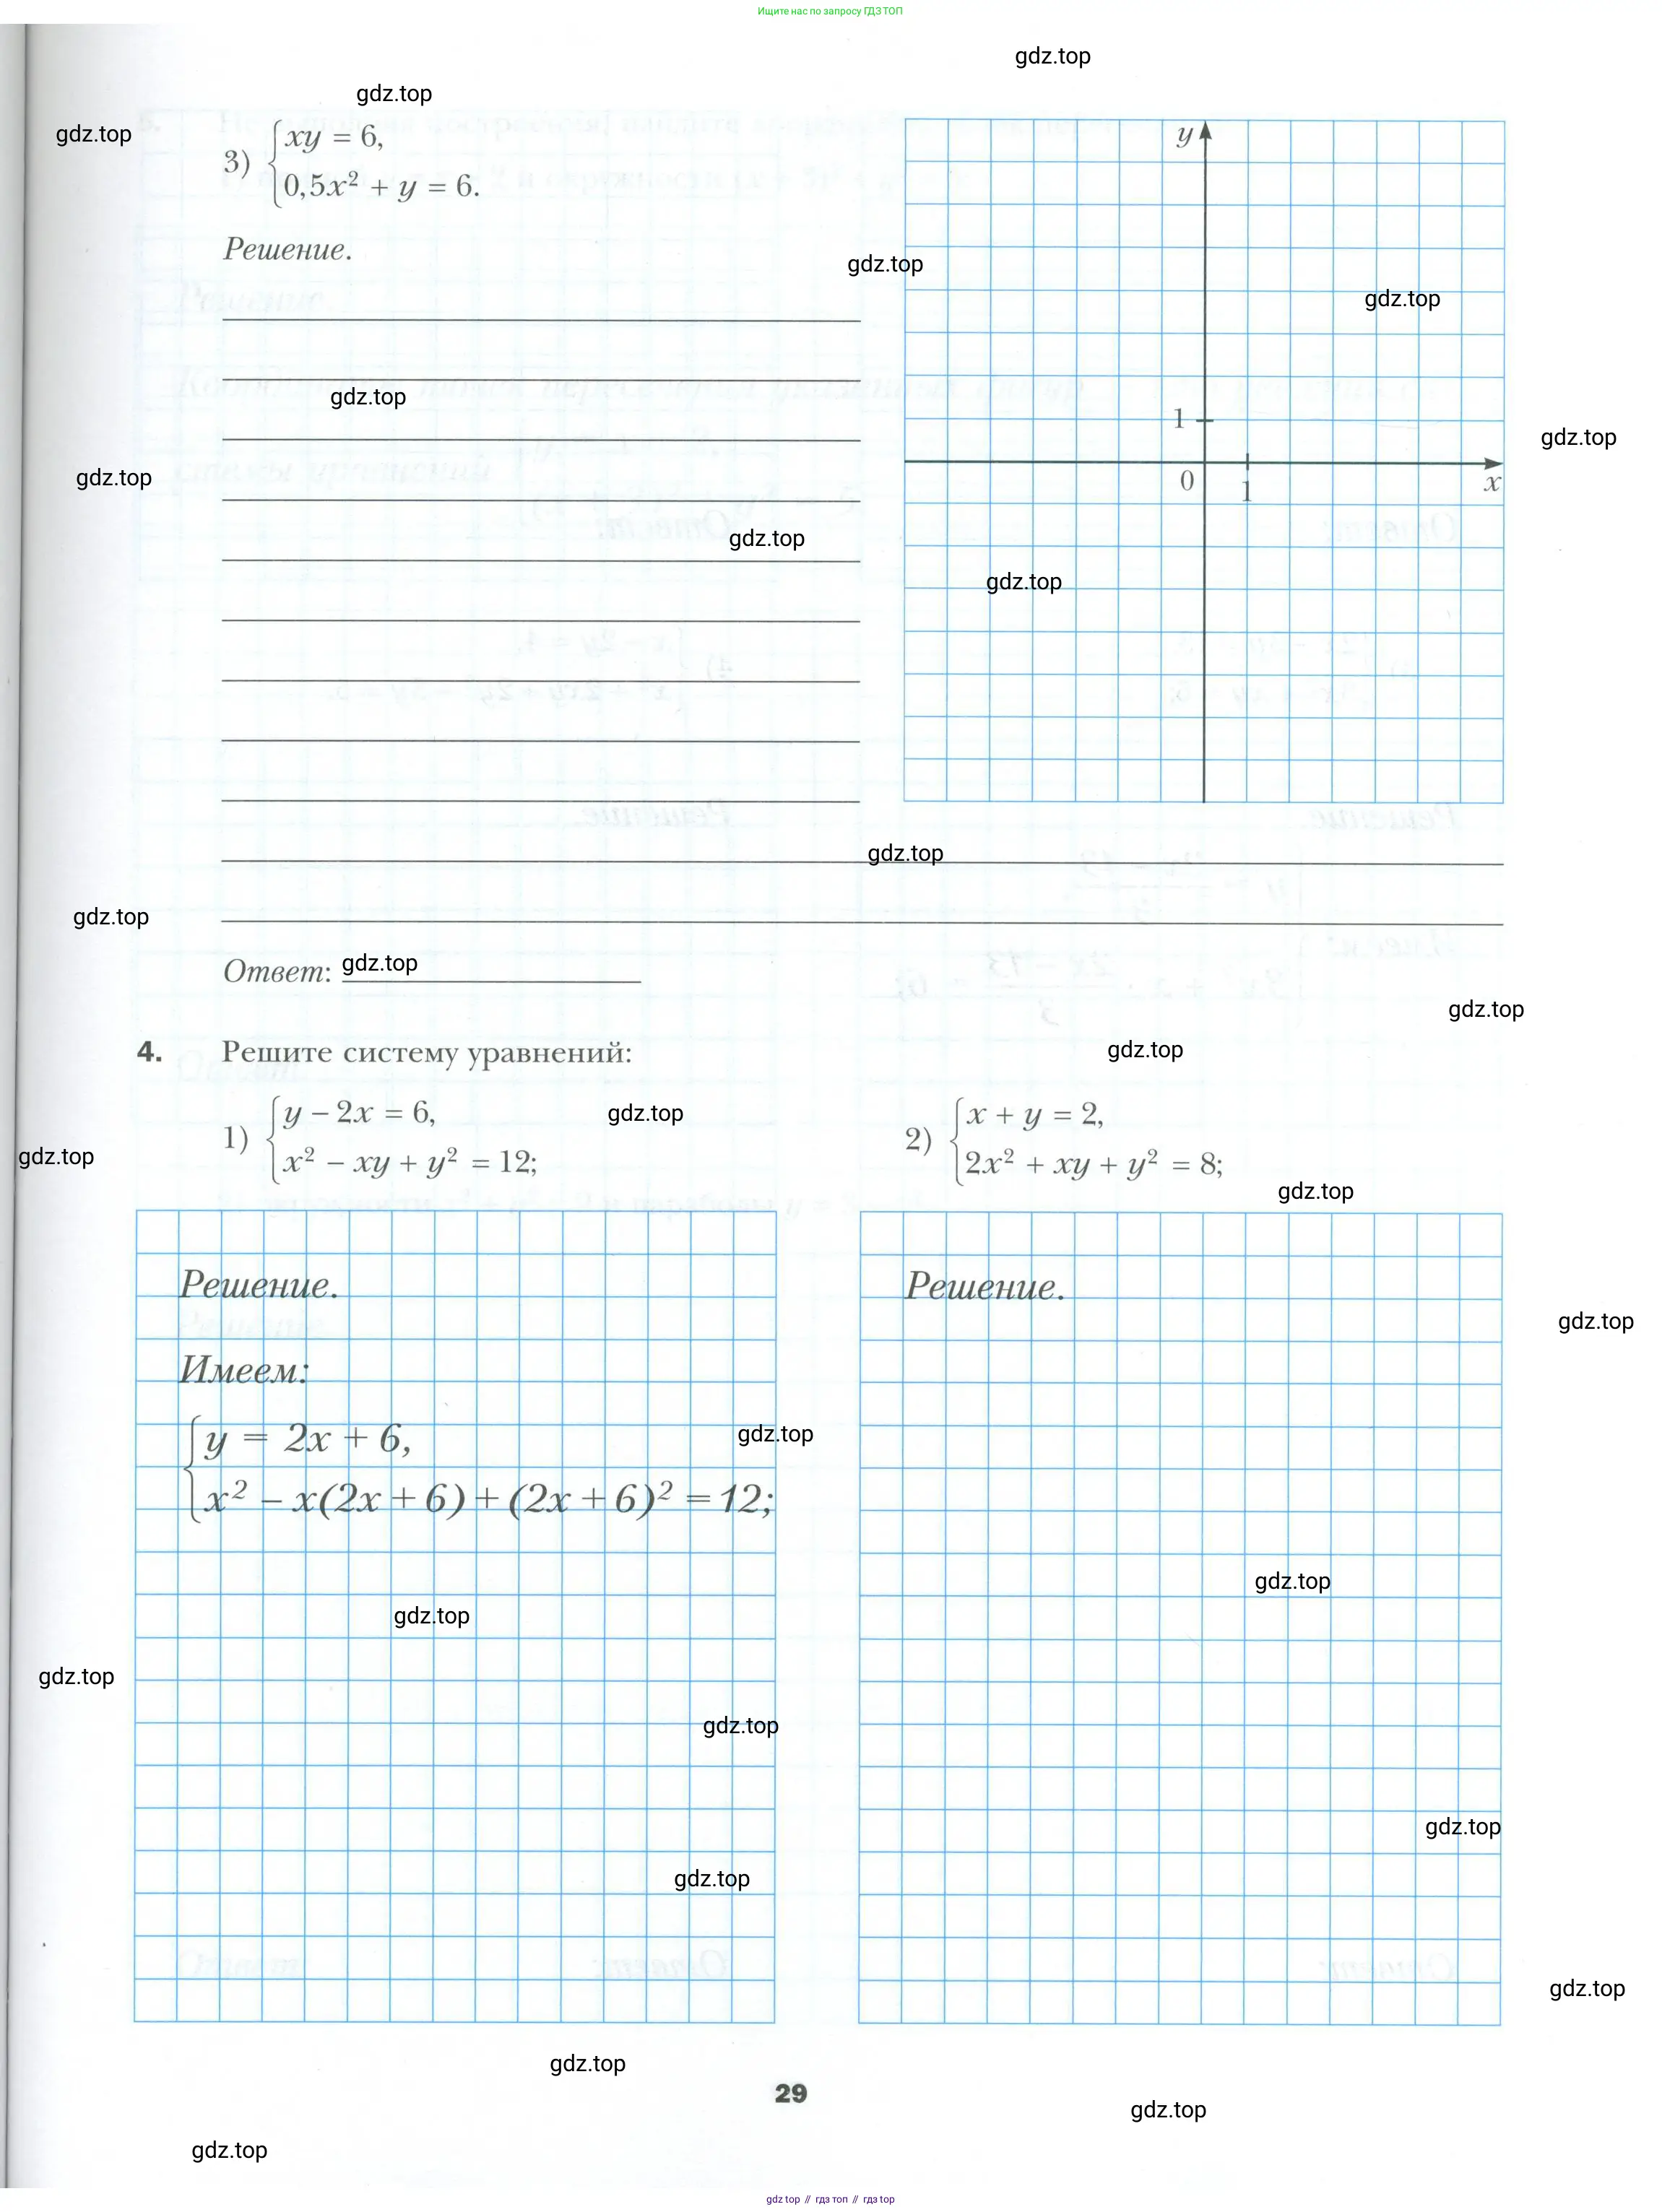 Ищите нас по запросу ГДЗ ТОП
gdz.top
gdz.top
gdz.top
3) {xy = 6,
0,5x² + y = 6.
Решение.
gdz.top
gdz.top
gdz.top
gdz.top
gdz.top
gdz.top
gdz.top
y
1
0
1
x
gdz.top
gdz.top
Ответ: gdz.top
gdz.top
4. Решите систему уравнений:
gdz.top
1) {y – 2x = 6,
x² – xy + y² = 12;
gdz.top
gdz.top
2) {x + y = 2,
2x² + xy + y² = 8;
gdz.top
Решение.
Имеем:
{y = 2x + 6,
x² – x(2x + 6) + (2x + 6)² = 12;
gdz.top
gdz.top
gdz.top
gdz.top
gdz.top
Решение.
gdz.top
gdz.top
gdz.top
gdz.top
gdz.top
29
gdz.top
gdz.top
gdz top // гдз топ // гдз top